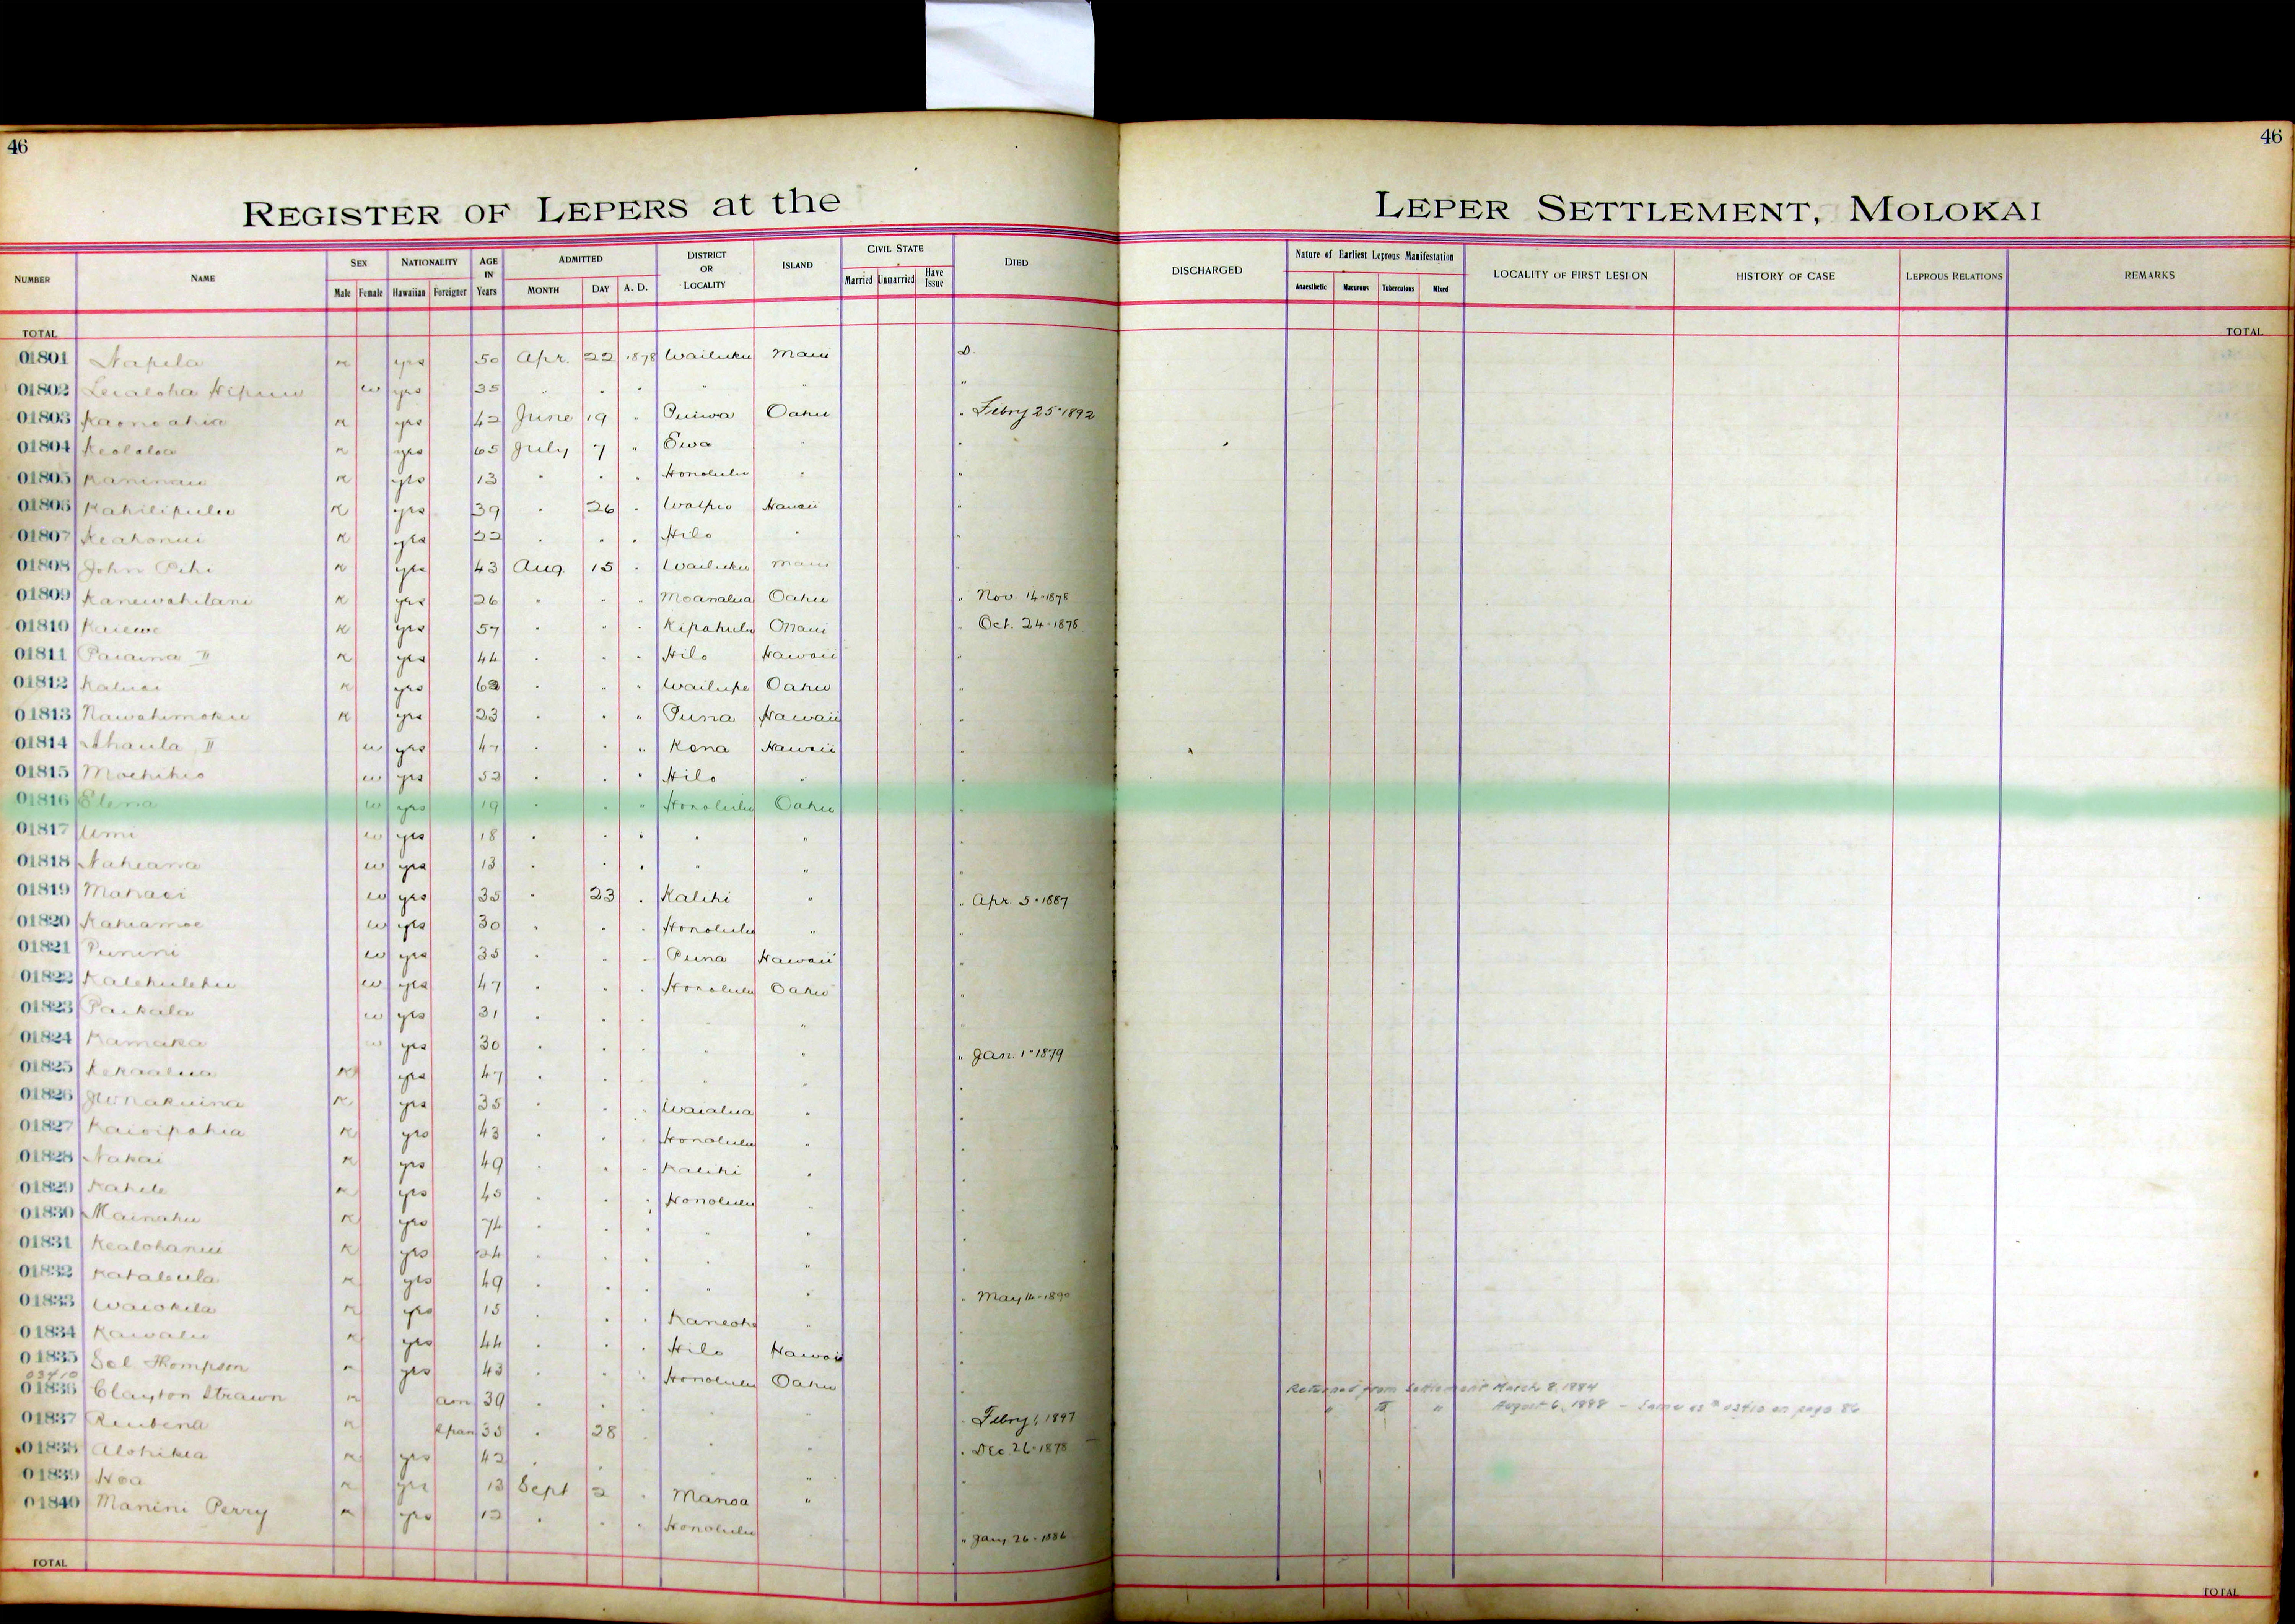 46
46
REGISTER OF LEPERS at the LEPER SETTLEMENT, MOLOKAI
NUMBER NAME SEX NATIONALITY AGE IN Years ADMITTED DISTRICT OR LOCALITY ISLAND CIVIL STATE DIED DISCHARGED Nature of Earliest Leprous Manifestation LOCALITY OF FIRST LESION HISTORY OF CASE LEPROUS RELATIONS REMARKS
Male Female Hawaiian Foreigner MONTH DAY A. D. Married Unmarried Have Issue Anaesthetic Macurous Tuberculous Mixed
TOTAL TOTAL
01801 Napela m yes 50 Apr. 22 1878 Wailuku Maui D.
01802 Lealoha w yes 35 " " " " " "
01803 Kaonoahia m yes 42 June 19 " Puiwa Oahu " Febry 25-1892
01804 Keololoa m yes 65 July 7 " Ewa " "
01805 Kaninau m yes 13 " " " Honolulu " "
01806 Kahilipulu m yes 39 " 26 " Waipio Hawaii "
01807 Keahonui m yes 22 " " " Hilo " "
01808 John m yes 43 Aug. 15 " Wailuku Maui "
01809 Kanewahilani m yes 26 " " " Moanalua Oahu " Nov. 14-1878
01810 Kaiewe m yes 57 " " " Kipahulu Maui " Oct. 24-1878
01811 Paiaina II m yes 44 " " " Hilo Hawaii "
01812 m yes 62 " " " Wailupe Oahu "
01813 Nawahimoku m yes 23 " " " Puna Hawaii "
01814 Ahaula II w yes 47 " " " Kona Hawaii "
01815 w yes 52 " " " Hilo " "
01816 Elena w yes 19 " " " Honolulu Oahu "
01817 Umi w yes 18 " " " " " "
01818 Nakeana w yes 13 " " " " " "
01819 Mahaei w yes 35 " 23 " Kalihi " " Apr. 5-1887
01820 Kahiamoe w yes 30 " " " Honolulu " "
01821 Punini w yes 35 " " " Puna Hawaii "
01822 Kalehulehu w yes 47 " " " Honolulu Oahu "
01823 Paikala w yes 31 " " " " "
01824 Kamaka w yes 30 " " " " " Jan. 1-1879
01825 Kekaalua m yes 47 " " " " "
01826 m yes 35 " " " Waialua " "
01827 Kaioipohia m yes 43 " " " Honolulu " "
01828 Nakai m yes 49 " " " Kalihi " "
01829 Kahele m yes 45 " " " Honolulu " "
01830 Mainahu m yes 74 " " " " "
01831 Kealohanui m yes 24 " " " " "
01832 m yes 49 " " " " " May 14-1890
01833 Waiokila m yes 15 " " " Kaneohe " "
01834 Kawalu m yes 44 " " " Hilo Hawaii "
01835 Sol Thompson m yes 43 " " " Honolulu Oahu "
03410
01836 Clayton Strawn m am 39 " " " " " Febry 1, 1897 Returned from Settlement March 8, 1884
" II " August 6, 1888 - Same as # 03410 on page 86
01837 Reubena m 35 " 28 " " " Dec 26-1878
01838 Alohikea m yes 42 " " " "
01839 Hoa m yes 13 Sept 2 " Manoa " "
01840 Manini Perry m yes 12 " " " Honolulu " Jany 26-1886
TOTAL TOTAL